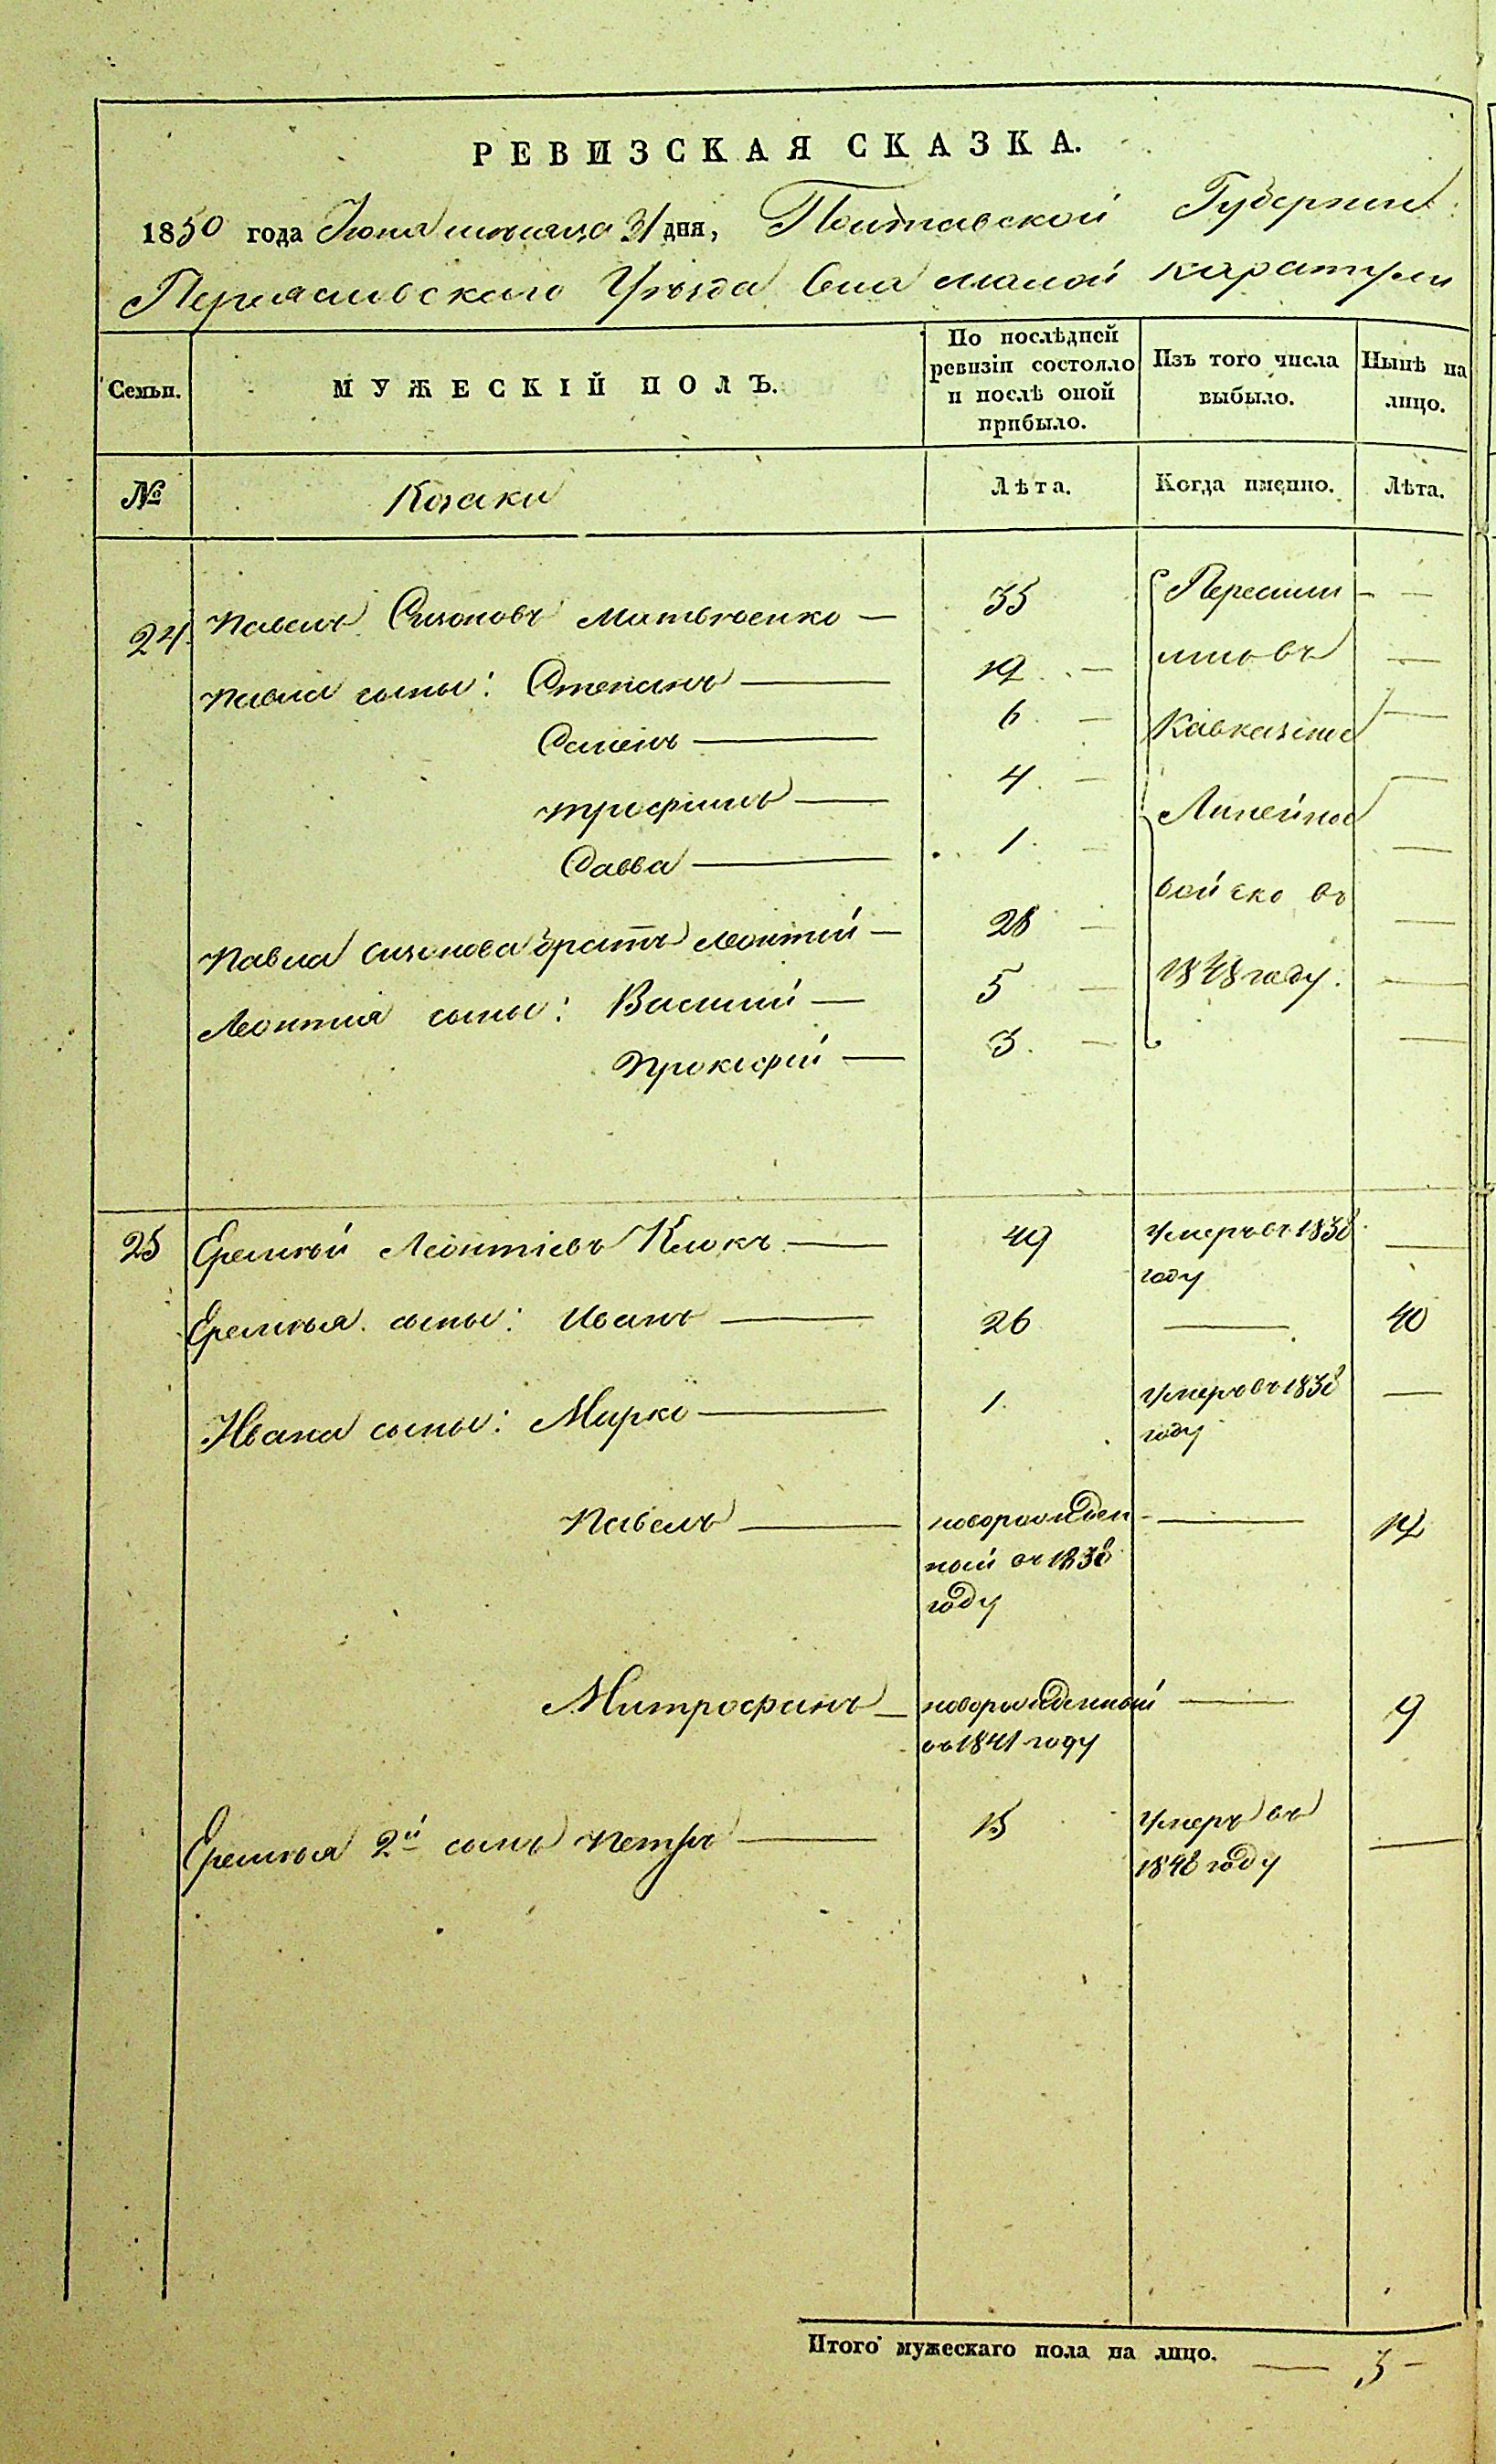 РЕВИЗСКАЯ СКАЗКА.
1850 года Іюня мѣсяца 31 дня, Полтавской Губерніи
Переяславскаго Уѣзда Села малой каратули
Семьи.
МУЖЕСКІЙ ПОЛЪ.
По послѣдней ревизіи состояло и послѣ оной прибыло.
Изъ того числа выбыло.
Нынѣ на лицо.
№ Козаки Лѣта. Когда именно. Лѣта.
24. Павелъ Сизоновъ Матвѣенко — 35 Пересили — —
Павла сыны: Степанъ — 12. — —
Семенъ — 6. — Кавказское —
Трофимъ — 4. — Линейное —
Савва — 1. — —
Павла Сизонова братъ Леонтій — 28 — войско въ —
Леонтія сыны: Василий — 5 — 1848 году. —
Прокофій — 3. — —
25 Еремѣй Леонтіевъ Клокъ — 49 Умеръ въ 1838 году —
Еремѣя сыны: Иванъ — 26 — 40
Ивана сыны: Марко — 1. Умеръ въ 1838 году —
Павелъ — новорожден
ный въ 1838
году — 12
Митрофанъ — новорожденный — 9
въ 1841 году
Еремѣя 2й сынъ Петръ — 15 Умеръ въ —
1848 году
Итого мужескаго пола на лицо. — 3 —